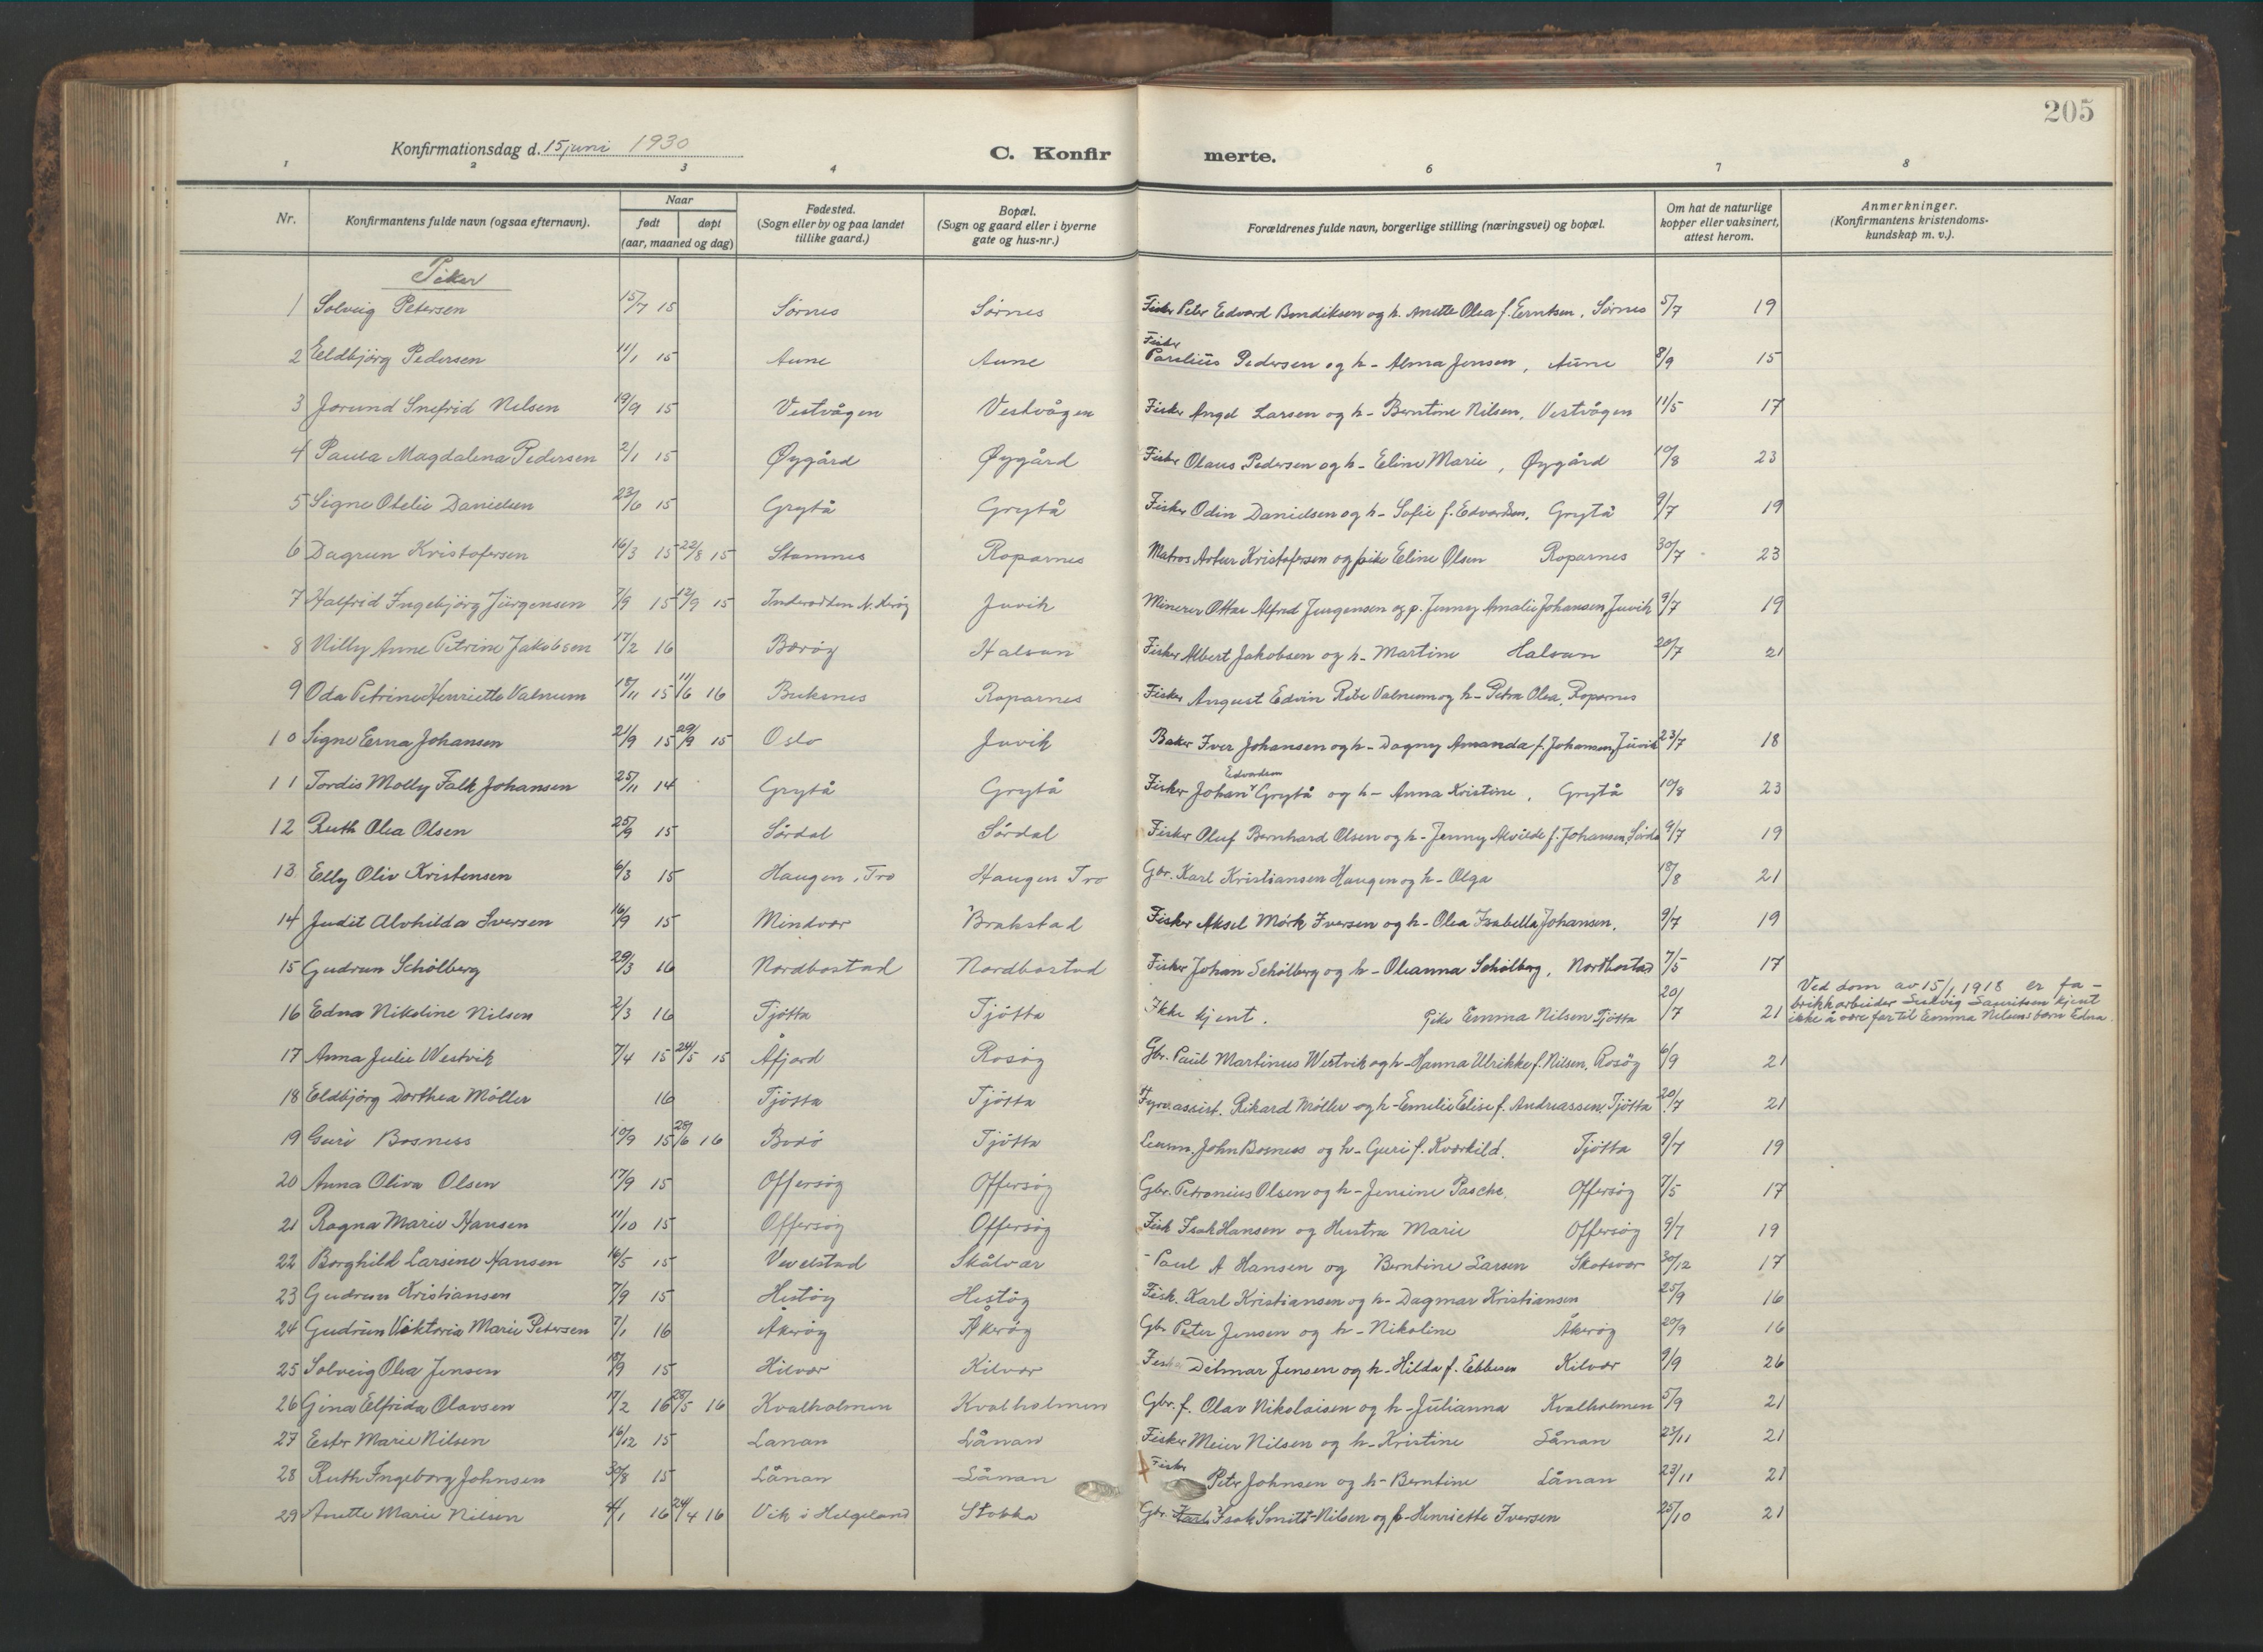 205
Konfirmationsdag d. 15 juni 1930
C. Konfirmerte.
1 2 3 4 6 7 8
Nr. Konfirmantens fulde navn (ogsaa efternavn). Naar født døpt (aar, maaned og dag) Fødested. (Sogn eller by og paa landet tillike gaard.) Bopæl. (Sogn og gaard eller i byerne gate og hus-nr.) Forældrenes fulde navn, borgerlige stilling (næringsvei) og bopæl. Om hat de naturlige kopper eller vaksinert, attest herom. Anmerkninger. (Konfirmantens kristendoms-kundskap m. v.).
Piker
1 Solveig Petersen 15/7 15 Sørnes Sørnes Fisker Peter Edvard Bendiksen og h. Anette Olea f. Erntsen, Sørnes 5/7 19
2 Eeldbjörg Pedersen 11/1 15 Aune Aune Fisker Parelius Pedersen og h- Alma Jensen, Aune 8/9 15
3 Jorund Snefrid Nilsen 19/9 15 Vestvågen Vestvågen Fisker Angel Larsen og h- Berntine Nilsen, Vestvågen 11/5 17
4 Paula Magdalena Pedersen 2/1 15 Øygård Øygård Fisker Olaus Pedersen og h- Eline Marie, Øygård 10/8 23
5 Signe Otelie Danielsen 23/6 15 Grytå Grytå Fisker Odin Danielsen og h- Sofie f. Edvardsen, Grytå 9/7 19
6 Dagrun Kristofersen 16/3 15 22/8 15 Stamnes Roparnes Matros Artur Kristofersen og pike Eline Olsen Roparnes 30/7 23
7 Halfrid Ingebjörg Jürgensen 7/9 15 12/9 15 Juvik Minerer Ottar Alfred Jurgensen og p. Jenny Amalie Johansen, Juvik 9/7 19
8 Nilly Anne Petrine Jakobsen 17/2 16 Bærøy Halsan Fisker Albert Jakobsen og h- Martine Halsan 20/7 21
9 Oda Petrine Henriette Valnum 18/11 15 11/6 16 Buksnes Roparnes Fisker August Edvin Rebe Valnum og h- Petra Olea, Roparnes
10 Signe Erna Johansen 21/9 15 29/9 15 Oslo Juvik Baker Iver Johansen og h- Dagny Amanda f. Johansen, Juvik 23/7 18
11 Tordis Molly Falk Johansen 25/11 14 Grytå Grytå Fisker Johan Edvardsen Grytå og h- Anna Kristine, Grytå 10/8 23
12 Ruth Olea Olsen 25/9 15 Sørdal Sørdal Fisker Oluf Bernhard Olsen og h- Jenny Alvilde f. Johansen, Sørdal 9/7 19
13 Elly Oliv Kristensen 6/3 15 Haugen, Tro Haugen Tro Gbr. Karl Kristiansen Haugen og h- Olga 18/8 21
14 Judit Alvhilda Iversen 16/9 15 Mindvær Brakstad Fisker Aksel Mørk Iversen og h- Olea Isabella Johansen, 9/7 19
15 Gudrun Schölberg 29/3 16 Nordbostad Nordbostad Fisker Johan Schölberg og h- Oleanna Schölberg, Nordbostad 7/5 17
16 Edna Nikoline Nilsen 2/3 16 Tjötta Tjötta Ikke kjent. Pike Emma Nilsen Tjötta 20/7 21 Ved dom av 15/1 1918 er fa-
brikkarbeider Ludvig Lauritsen kjent
ikke å være far til Emma Nilsens barn Edna.
17 Anna Julie Westvik 7/4 15 24/5 15 Åfjord Rosøy Gbr. Paul Martinus Westvik og h- Hanna Ulrikke f. Nilsen, Rosøy 6/9 21
18 Eldbjörg Dorthea Möller 16 Tjötta Tjötta Fyrassist. Rikard Möller og h- Emelie Elise f. Andreassen, Tjötta 20/7 21
19 Guri Bosness 10/9 15 28/6 16 Bodö Tjötta Lensm. John Bosness og h- Guri f. Kværkild. Tjötta 9/7 19
20 Anna Oliva Olsen 17/9 15 Offersøy Offersøy Gbr. Petronius Olsen og h- Jensine Pasche. Offersøy 7/5 17
21 Ragna Marie Hansen 11/10 15 Offersøy Offersøy Fisk Isak Hansen og Hustru Marie Offersøy 9/7 19
22 Borghild Larsine Hansen 16/5 15 Vevelstad Skålvær - Paul A Hansen og Berntine Larsen 30/12 17
23 Gudrun Kristiansen 7/9 15 Hestöy Hestöy Fisk. Karl Kristiansen og h- Dagmar Kristiansen 25/9 16
24 Gudrun Viktoria Marie Petersen 7/1 16 Åkerøy Åkerøy Gbr Peter Jensen og h- Nikoline Åkerøy 20/9 16
25 Solveig Olea Jensen 18/9 15 Kilvær Kilvær Fisker Ditmar Jensen og h- Hilda f. Ebbesen Kilvær 9/9 26
26 Gina Elfrida Olavsen 17/2 16 28/5 16 Kvalholmen Kvalholmen Gbr. f. Olav Nikolaisen og h- Julianna Kvalholmen 5/9 21
27 Ester Marie Nilsen 16/12 15 Lanan Lånan Fisker Meier Nilsen og h- Kristine Lånan 23/11 21
28 Ruth Ingeborg Johnsen 30/8 15 Lånan Lånan Fisker Peter Johnsen og h- Berntine Lånan 23/11 21
29 Anette Marie Nilsen 4/1 16 24/4 16 Vik i Helgeland Stokka Gbr. Isak Smitt-Nilsen og h- Henriette Iversen 25/10 21